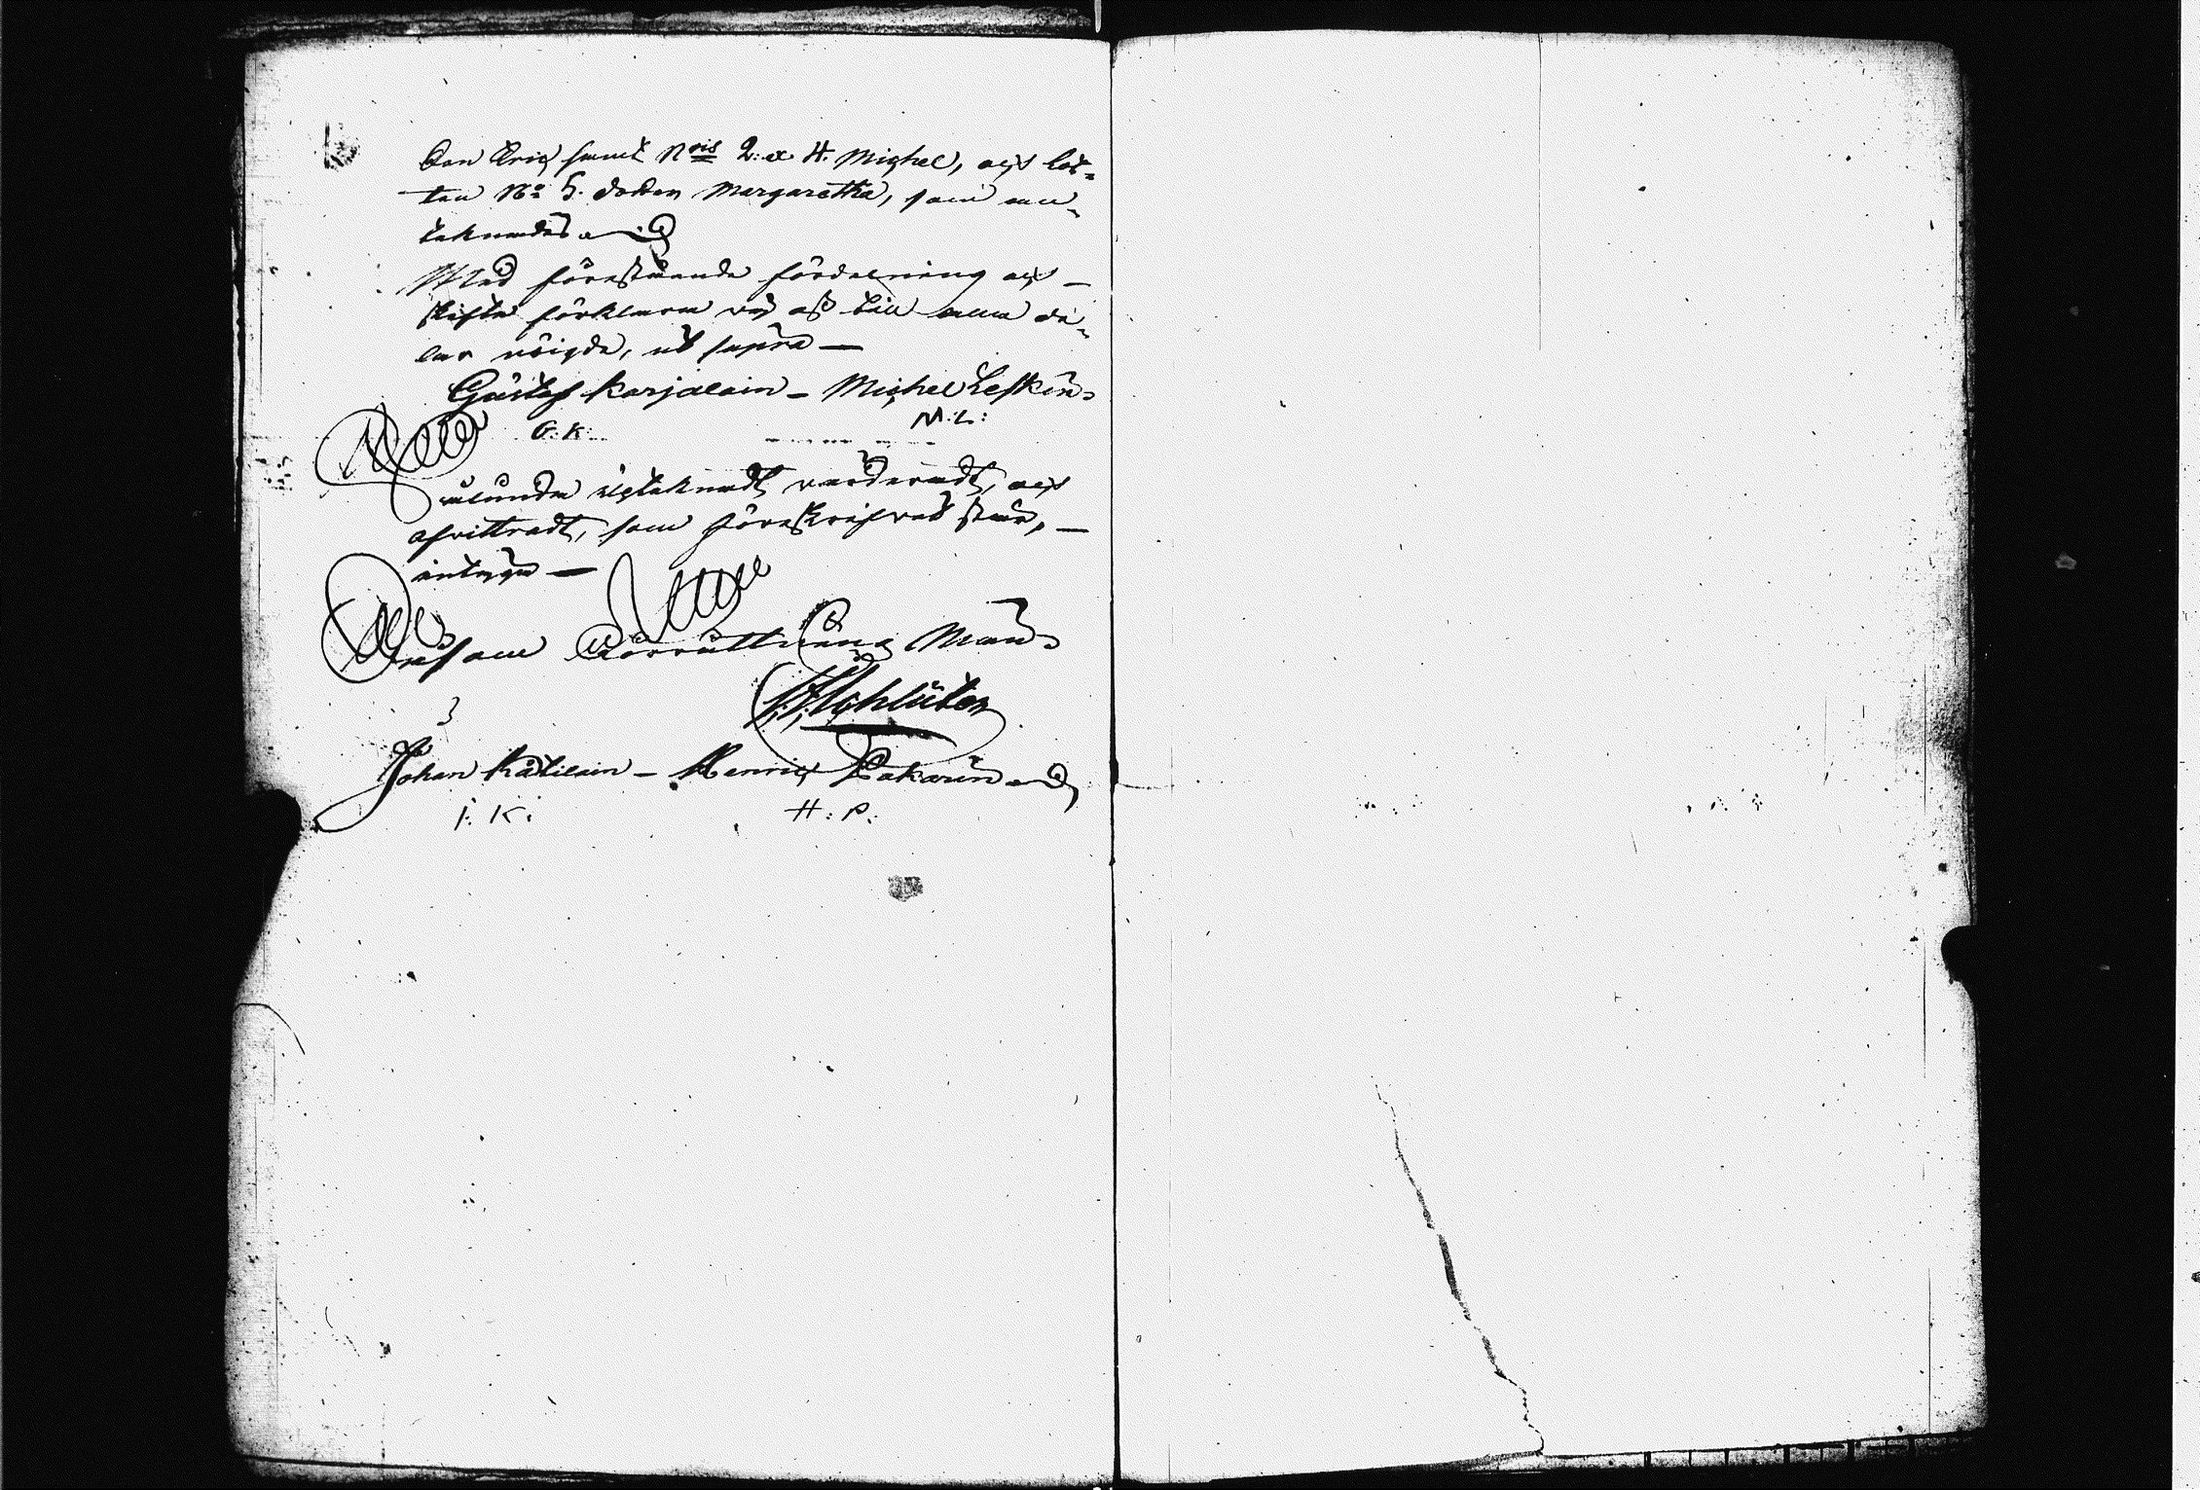 Son Eric samt N:ris 2. et 4. Michel, och lot-
ten N:o 5. dottren Margaretha, som an-
teknades
Med förestående fördelning och
skifte förklarar vi oss till alla de-
lar nöigde, ut supra —
Gustaf Karjalain – Michel Leskin-
G: K: M: L:
Sålunda upteknadt, värderadt, och
afvittradt, som föreskrifvet står, —
intyga —
Gustaf Karjalain
Som Förrättning Män-
Schlüter
Johan Kätilain – Henric Pakarin
I: K: H: P: